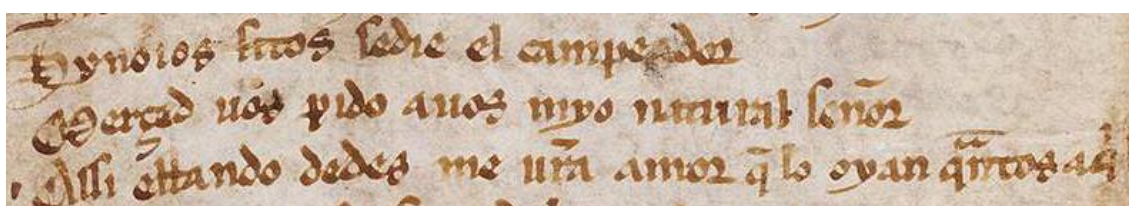 Hynoios fitos sedie el campeador
Merçed uos pido auos myo natural señor
Assi estando dedes me ur̃a amor q̃ lo oyan q̃ntos aq̃